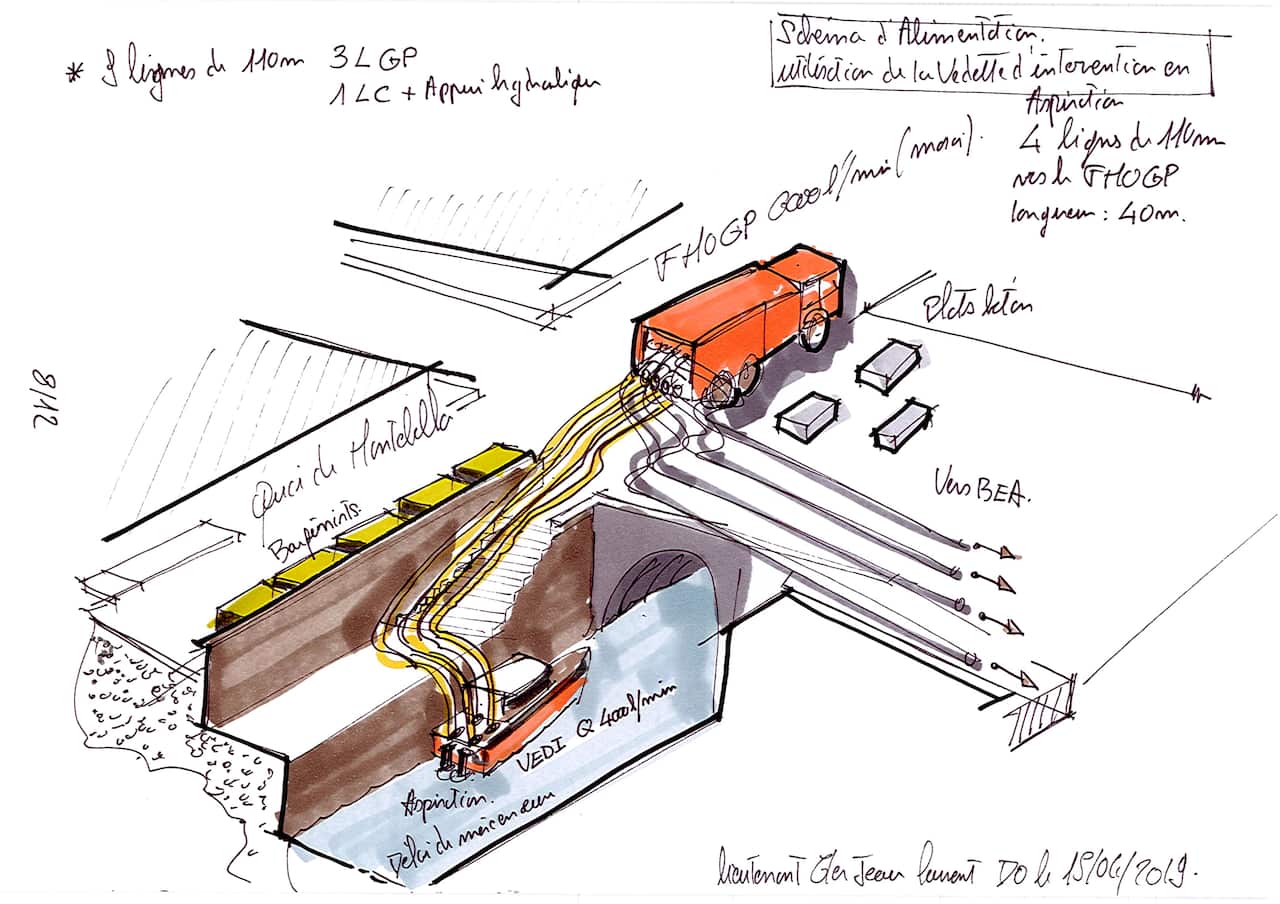 * 3 lignes de 110m 3 LGP
1 LC + Appui hydraulique
Schéma d'Alimentation.
utilisation de la Vedette d'intervention en
Aspiration
4 lignes de 110m
vers le FHOGP
longueur : 40m.
FHOGP l/min (maxi).
Plots béton
8/12
Quai de Montebello
Vers BEA.
VEDI Q 4000 l/min
Aspiration.
Délai de mise en œuvre
lieutenant Jean Laurent DO le 15/04/2019.